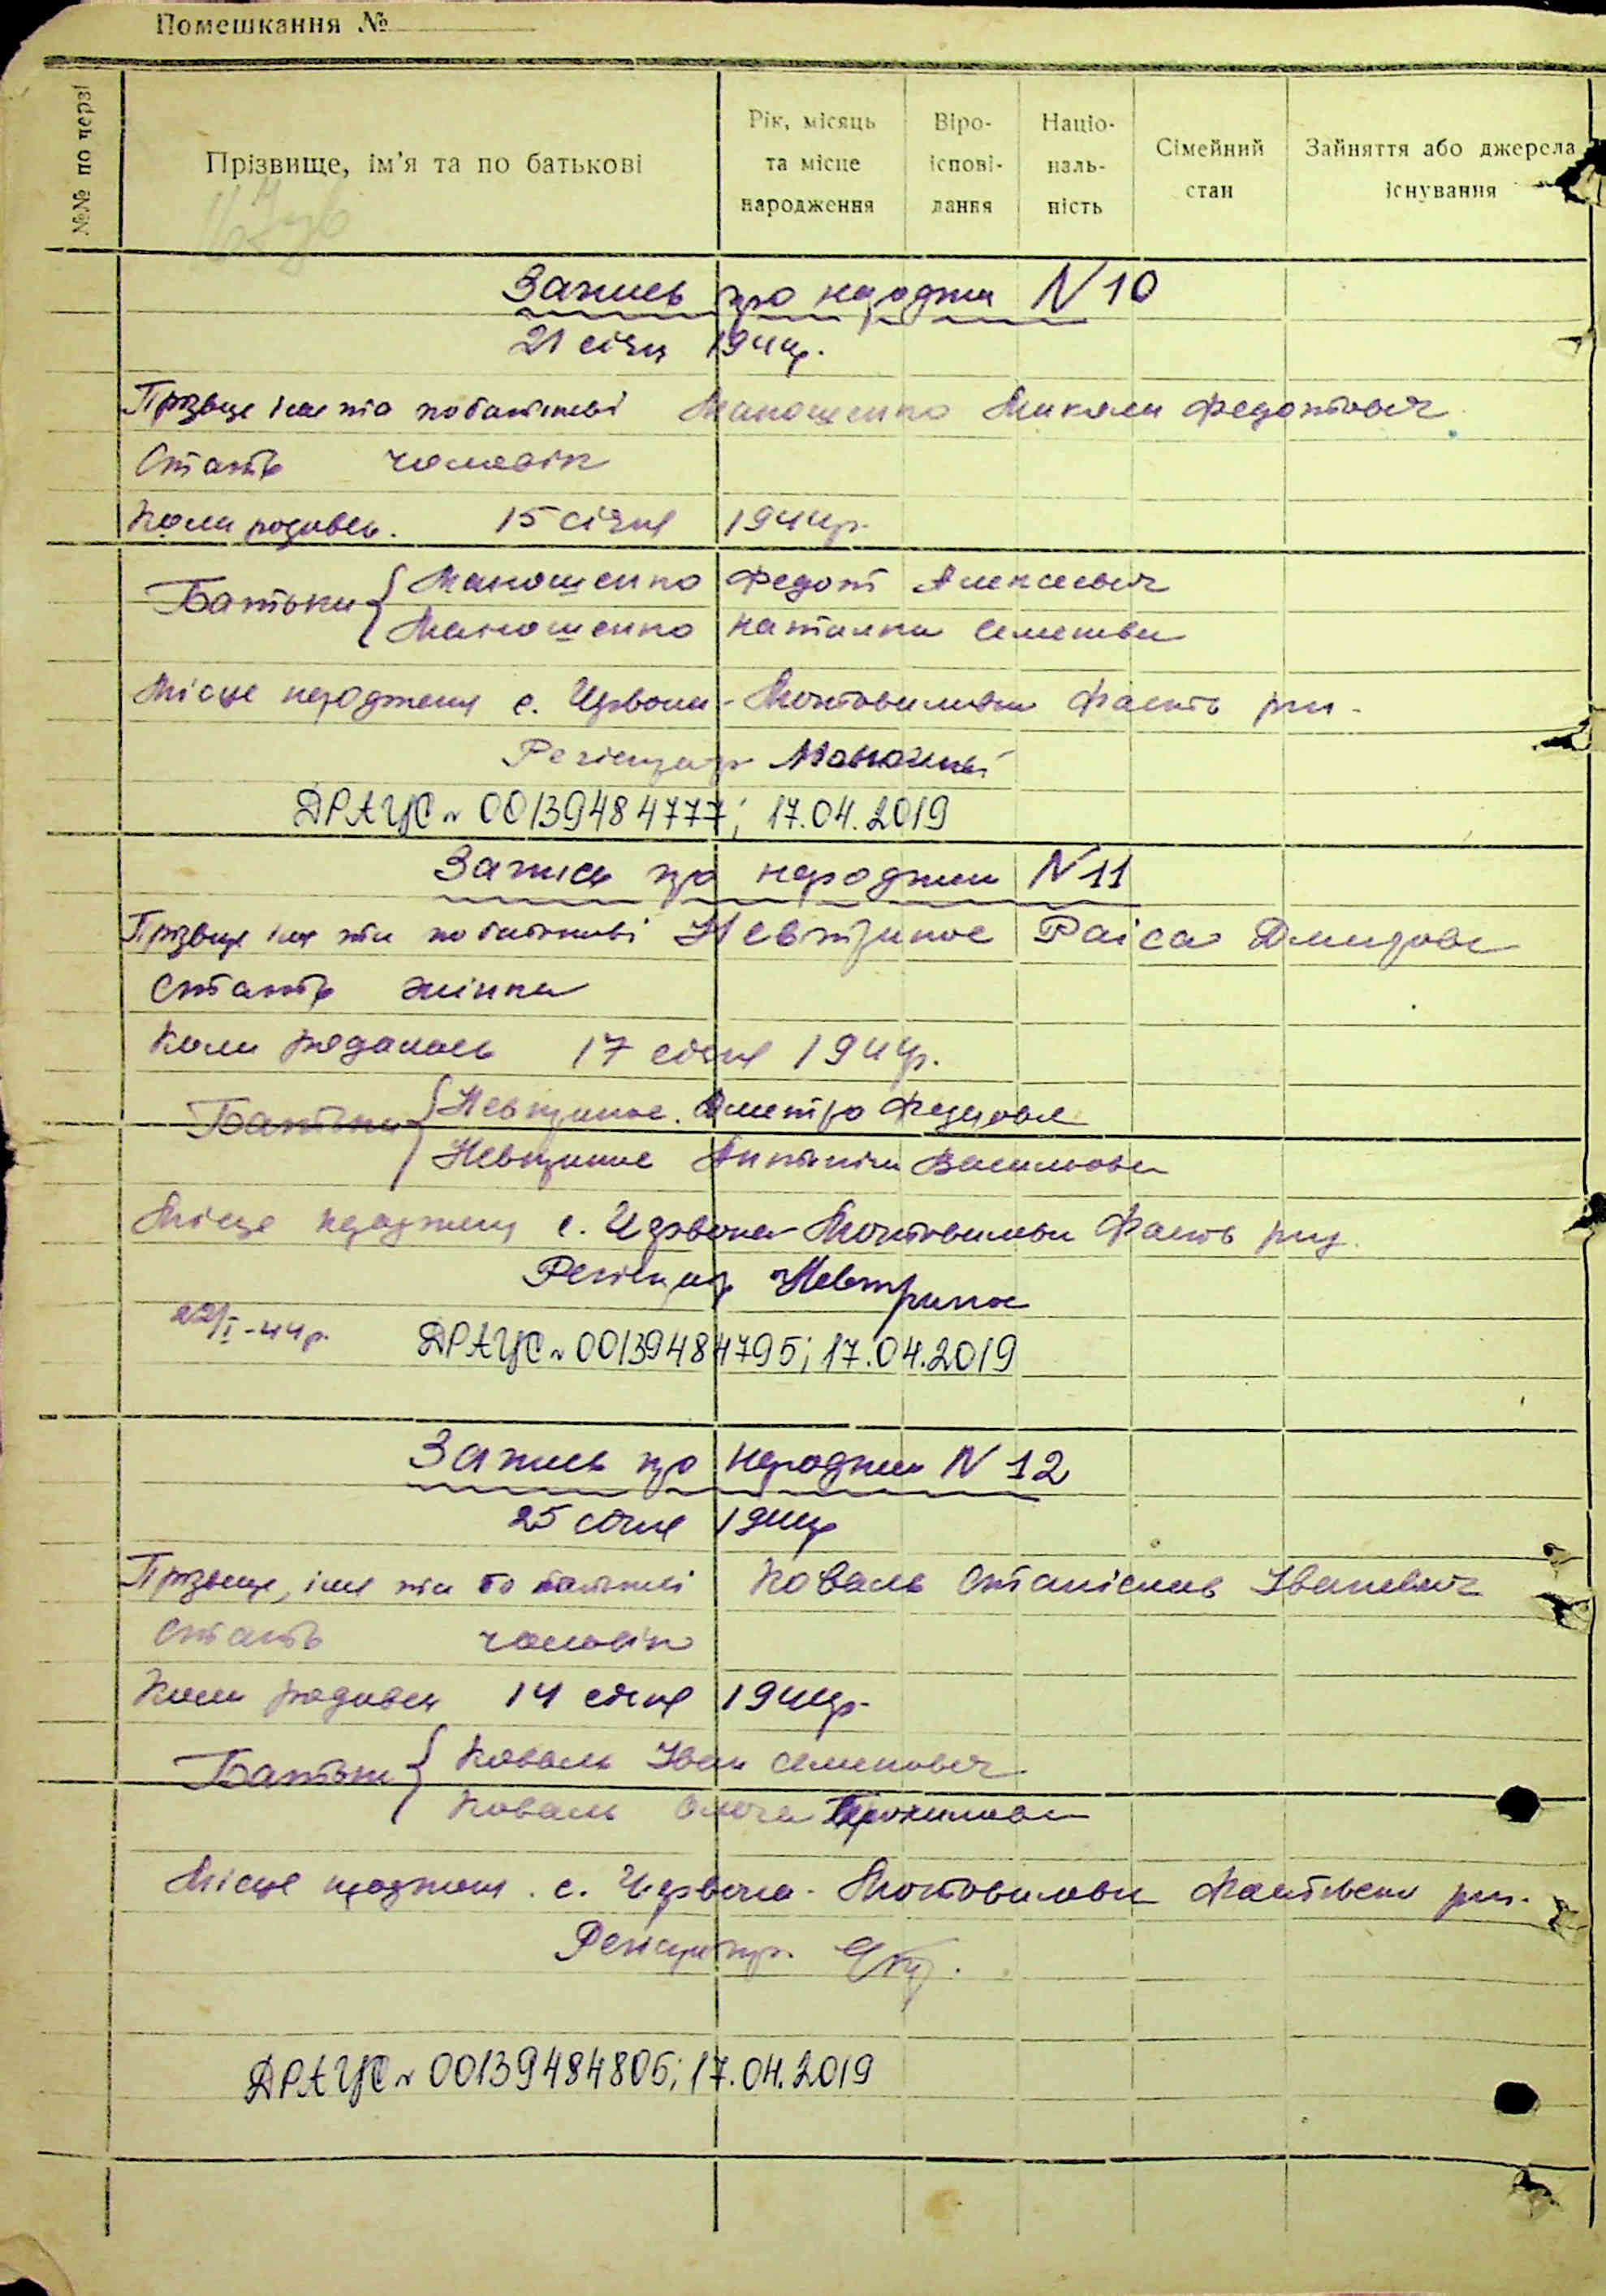 Помешкання №
№№ по черзі
Прізвище, ім'я та по батькові
Рік, місяць та місце народження
Віро-іспові-дання
Націо-наль-ність
Сімейний стан
Зайняття або джерела існування
Запись про народжн N 10
21 січн 1944р.
Прізвще імя та по батькові Маношенко Микола Федотович
Стать чоловік
Коли родивсь. 15 січня 1944р.
Батьки Маношенко Федот Алексеевич
Маношенко Наталка Семенови
Місце народженя с. Червона-Мотовиловка Фастів рн.
ДРАЦС № 00139484777; 17.04.2019
Запись про народжен N 11
Прізвще імя та по батькові Невтринос Раіса Дмитров
Стать жінка
Коли родилась 17 січня 1944р.
Батьки Невтринос Дметро Федоров
Невтринос Василиови
Місце народженя с. Червона Мотовиловки Фастів рн.
Невтринос
22/I-44р.
ДРАЦС № 00139484795; 17.04.2019
Запись про народжен N 12
25 січня 1944р
Прізвище, імя та по батькові Коваль Станіслав Іванович
Стать чоловік
Коли родивсь 14 січня 1944р.
Батьки Коваль Іван Семенович
Коваль Ольга Трохимовн
Місце народжен. с. Червона-Мотовиловк Фастівськ рн.
ДРАЦС № 00139484805; 17.04.2019